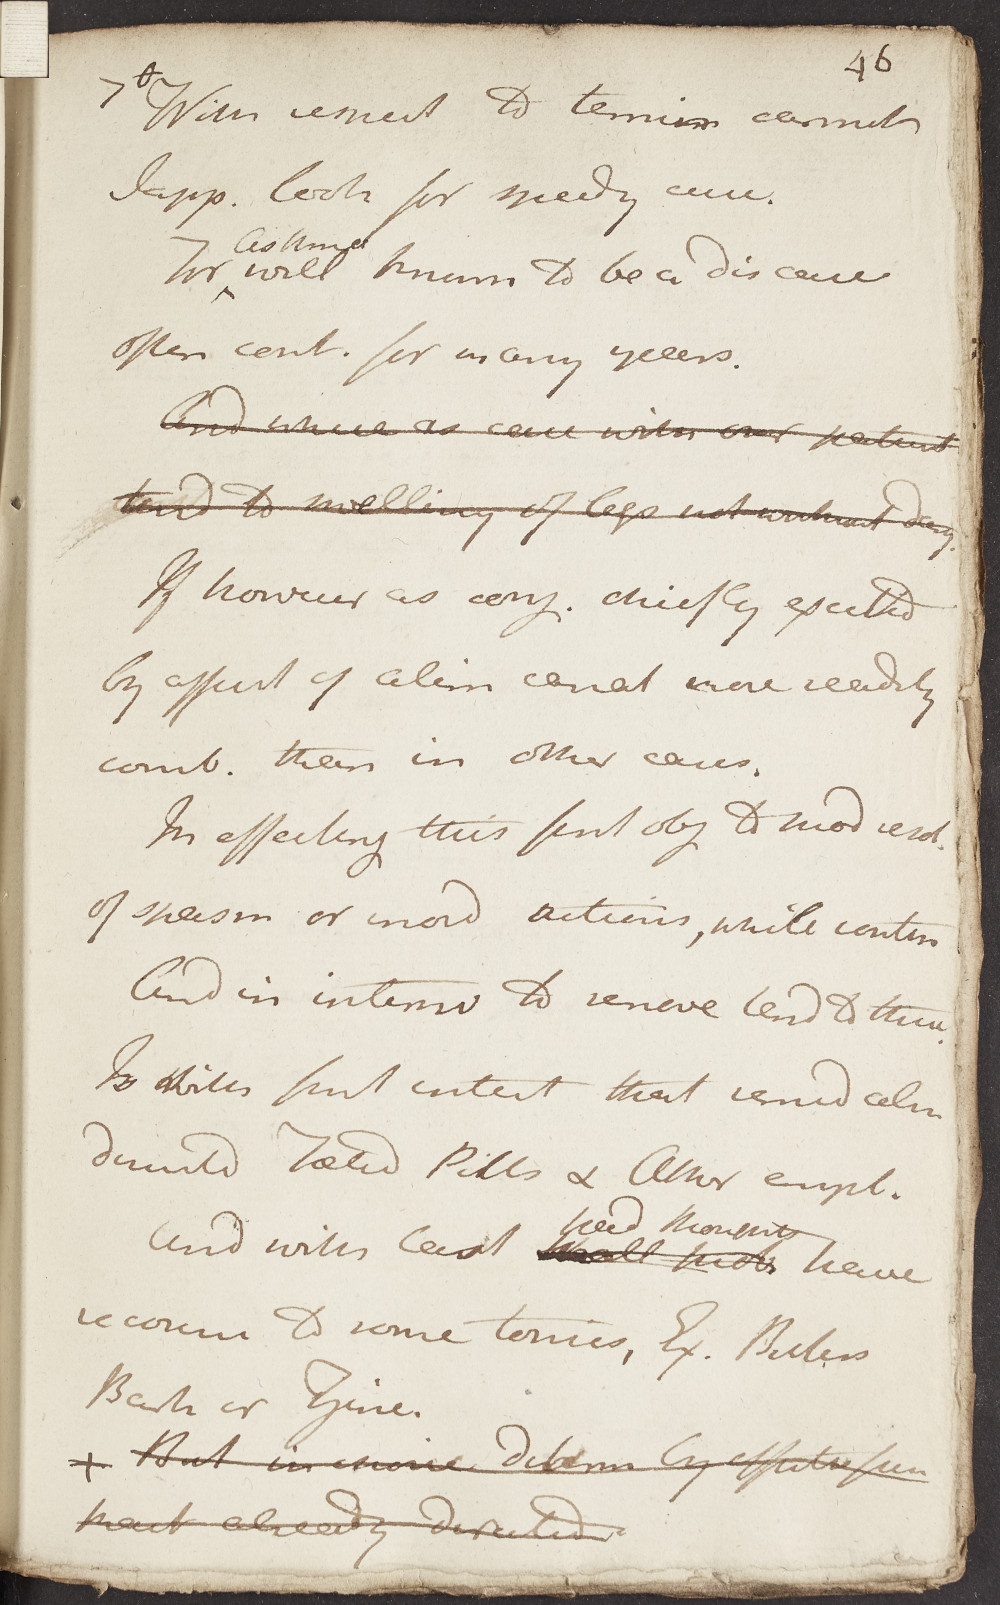 46
7th With respect to termin cannot
I app. look for speedy cure.
For asthma well known to be a disease
often cont. for many years.
And where as case with our patient
tend to swelling of legs not without dang.
If however as conj. chiefly excited
by affect of alim canal more readily
comb. than in other cases.
In effecting this first obj to mod
of spasm or morb actions, while
And in interv to remove tend to these.
Is with first intent that remed
directd Foetid Pills & Æther empl.
And with last head thoughts have
recourse to some tonics, Ex. Bitters
Bark or Zinc.
+ But in more determ by
ment already directed.